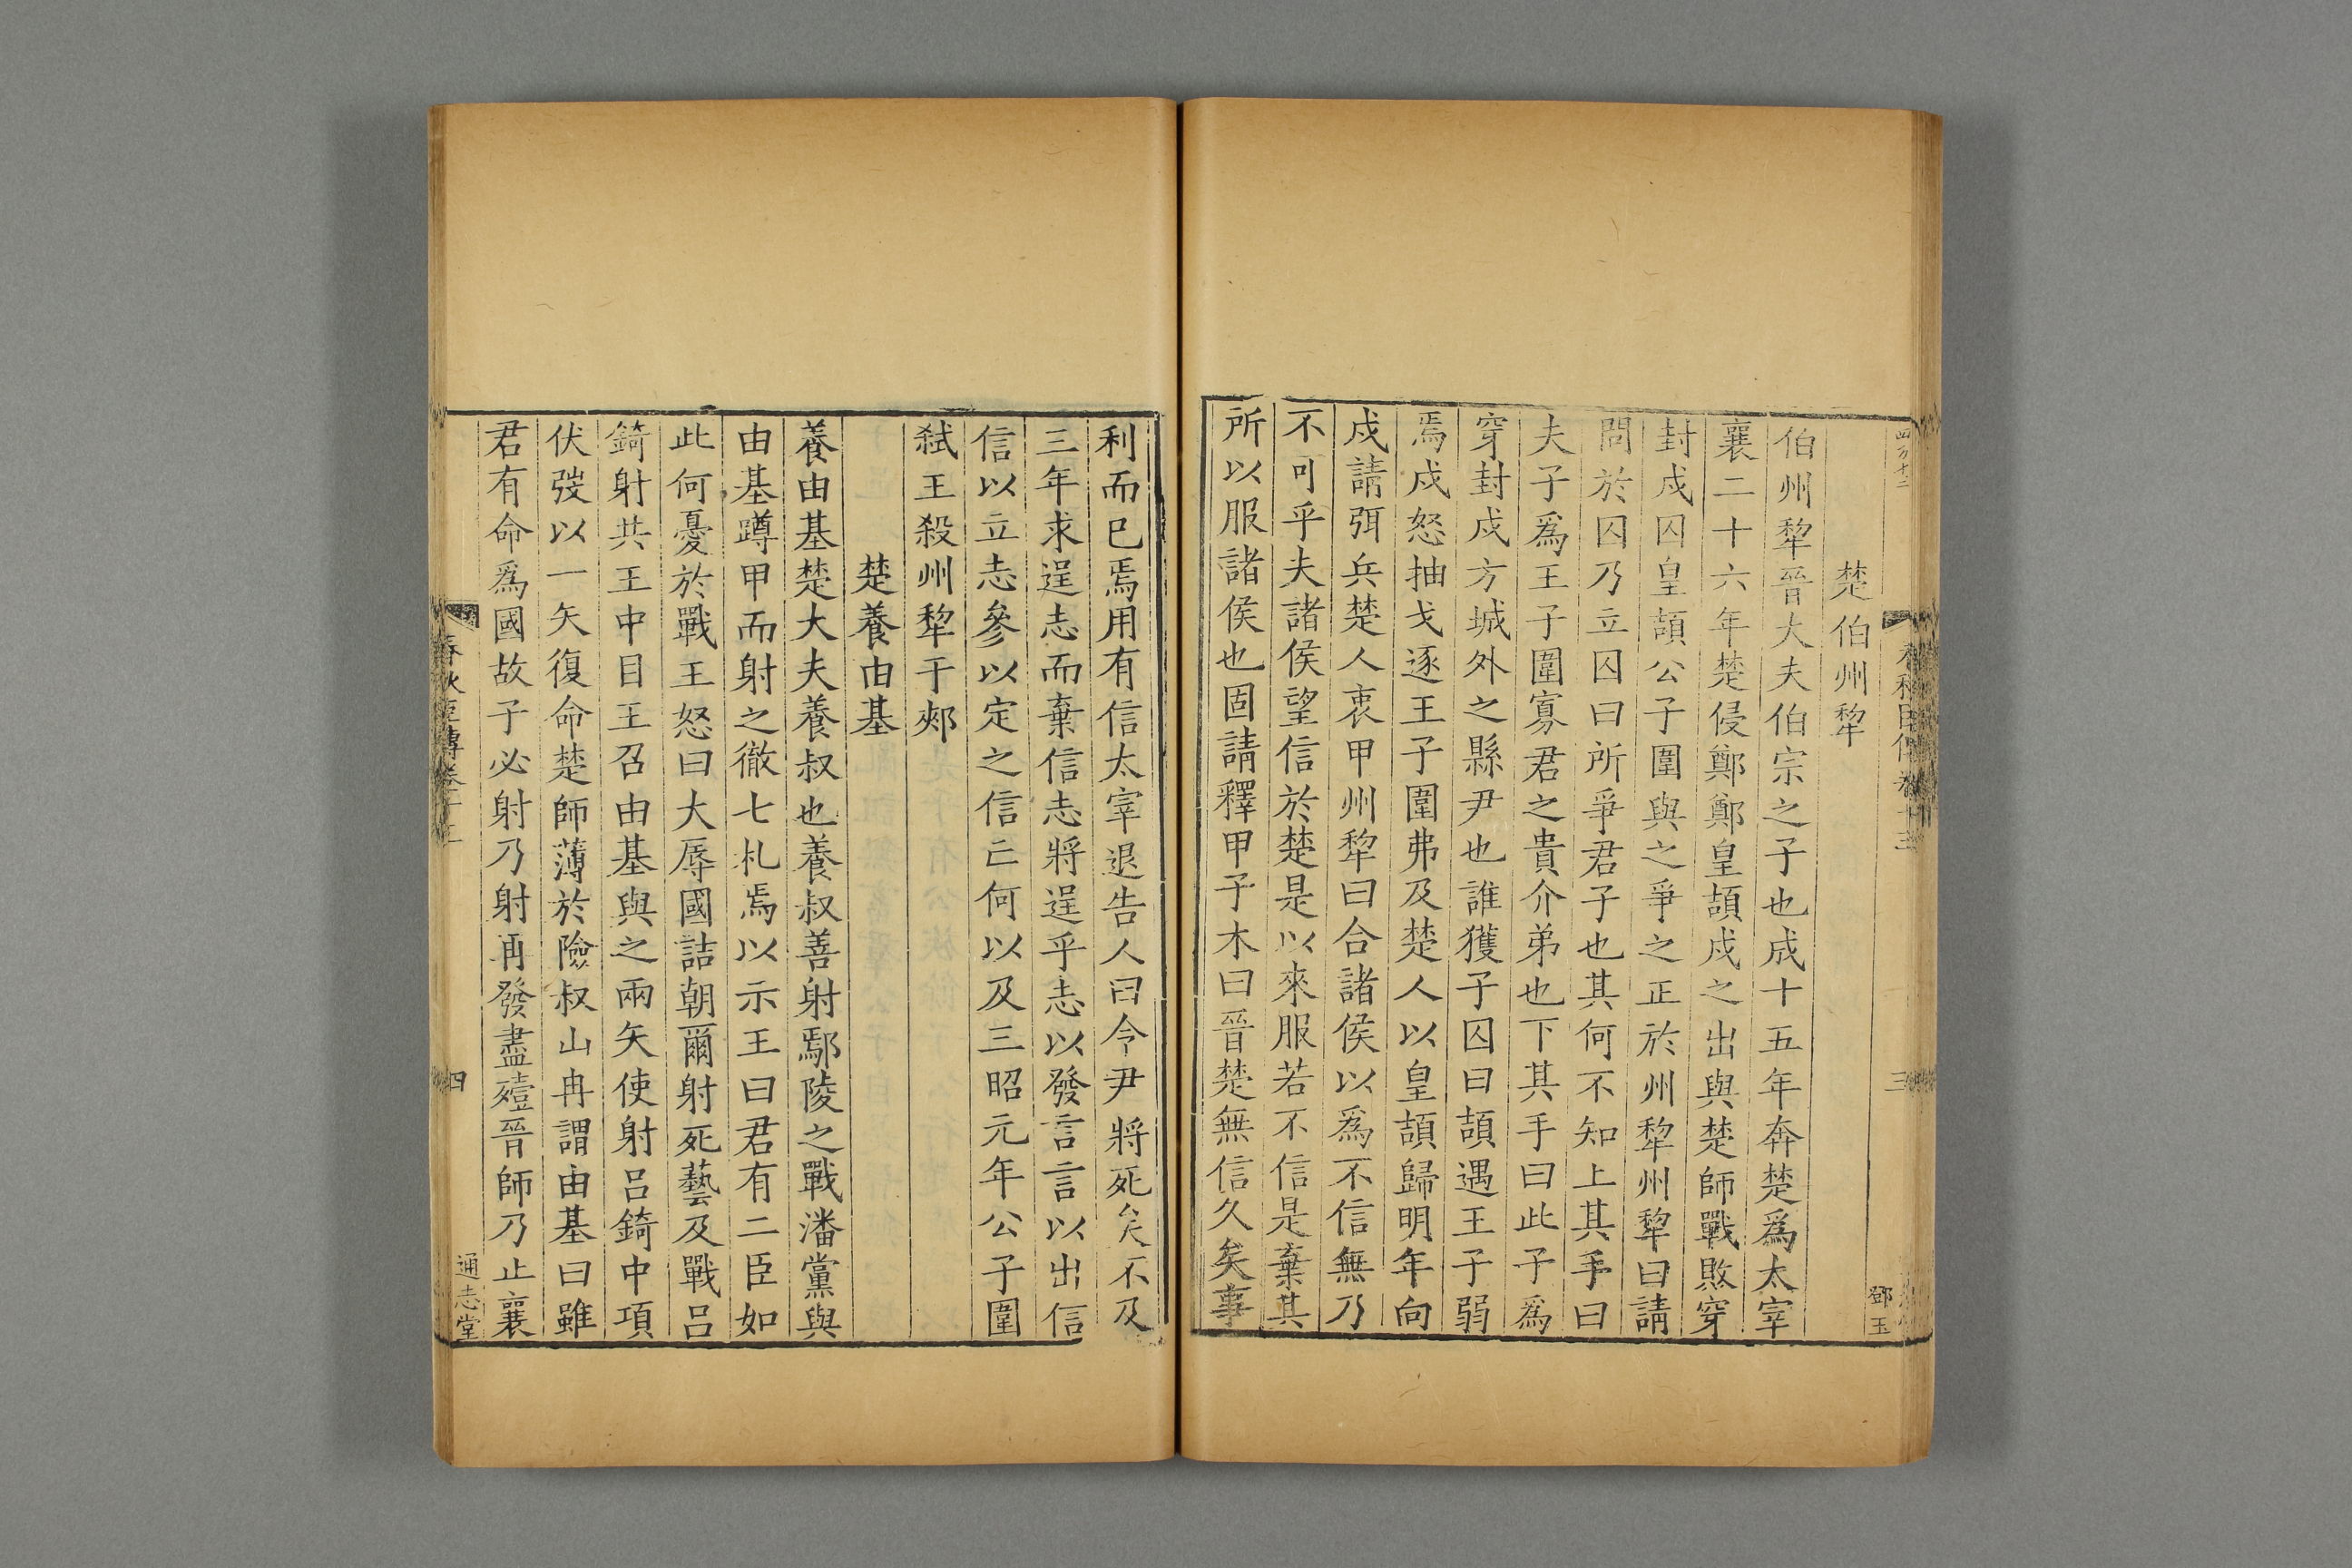 楚伯州犂
伯州犂晉大夫伯宗之子也成十五年奔楚爲太宰
襄二十六年楚侵鄭鄭皇頡戍之出與楚師戰敗穿
封戍囚皇頡公子圍與之爭之正於州犂州犂曰請
問於囚乃立囚曰所爭君子也其何不知上其手曰
夫子爲王子圍寡君之貴介弟也下其手曰此子爲
穿封戍方城外之縣尹也誰獲子囚曰頡遇王子弱
焉戍怒抽戈逐王子圍弗及楚人以皇頡歸明年向
戍請弭兵楚人衷甲州犂曰合諸侯以爲不信無乃
不可乎夫諸侯望信於楚是以來服若不信是棄其
所以服諸侯也固請釋甲子木曰晉楚無信久矣事
利而已焉用有信太宰退告人曰令尹將死矣不及
三年求逞志而棄信志將逞乎志以發言言以出信
信以立志參以定之信亡何以及三昭元年公子圍
弑王殺州犂于郟
楚養由基
養由基楚大夫養叔也養叔善射鄢陵之戰潘黨與
由基蹲甲而射之徹七札焉以示王曰君有二臣如
此何憂於戰王怒曰大辱國詰朝爾射死藝及戰呂
錡射共王中目王召由基與之兩矢使射呂錡中項
伏弢以一矢復命楚師薄於險叔山冉謂由基曰雖
君有命爲國故子必射乃射再發盡殪晉師乃止襄
春秋臣傳卷十三
三
鄧玉
四
通志堂